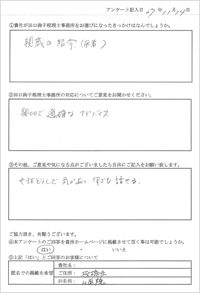 アンケート記入日 27年11月14日
①貴社が田口絢子税理士事務所をお選びになったきっかけはなんでしょうか。
親戚の紹介
②田口絢子税理士事務所の対応についてご意見をお聞かせください。
親切で適確なアドバイス
③その他、ご意見や気になる点がございましたら自由にご記入をお願い致します。
女性としして気がねい 何でも話せる。
ご協力頂き、有難うございます。
④本アンケートのご回答を貴社ホームページに掲載させて頂く事は可能でしょうか。
はい ・ いいえ
⑤上記「はい」とご回答のお客様について
匿名での掲載を希望
貴社名：
ご住所：板橋区
お名前：